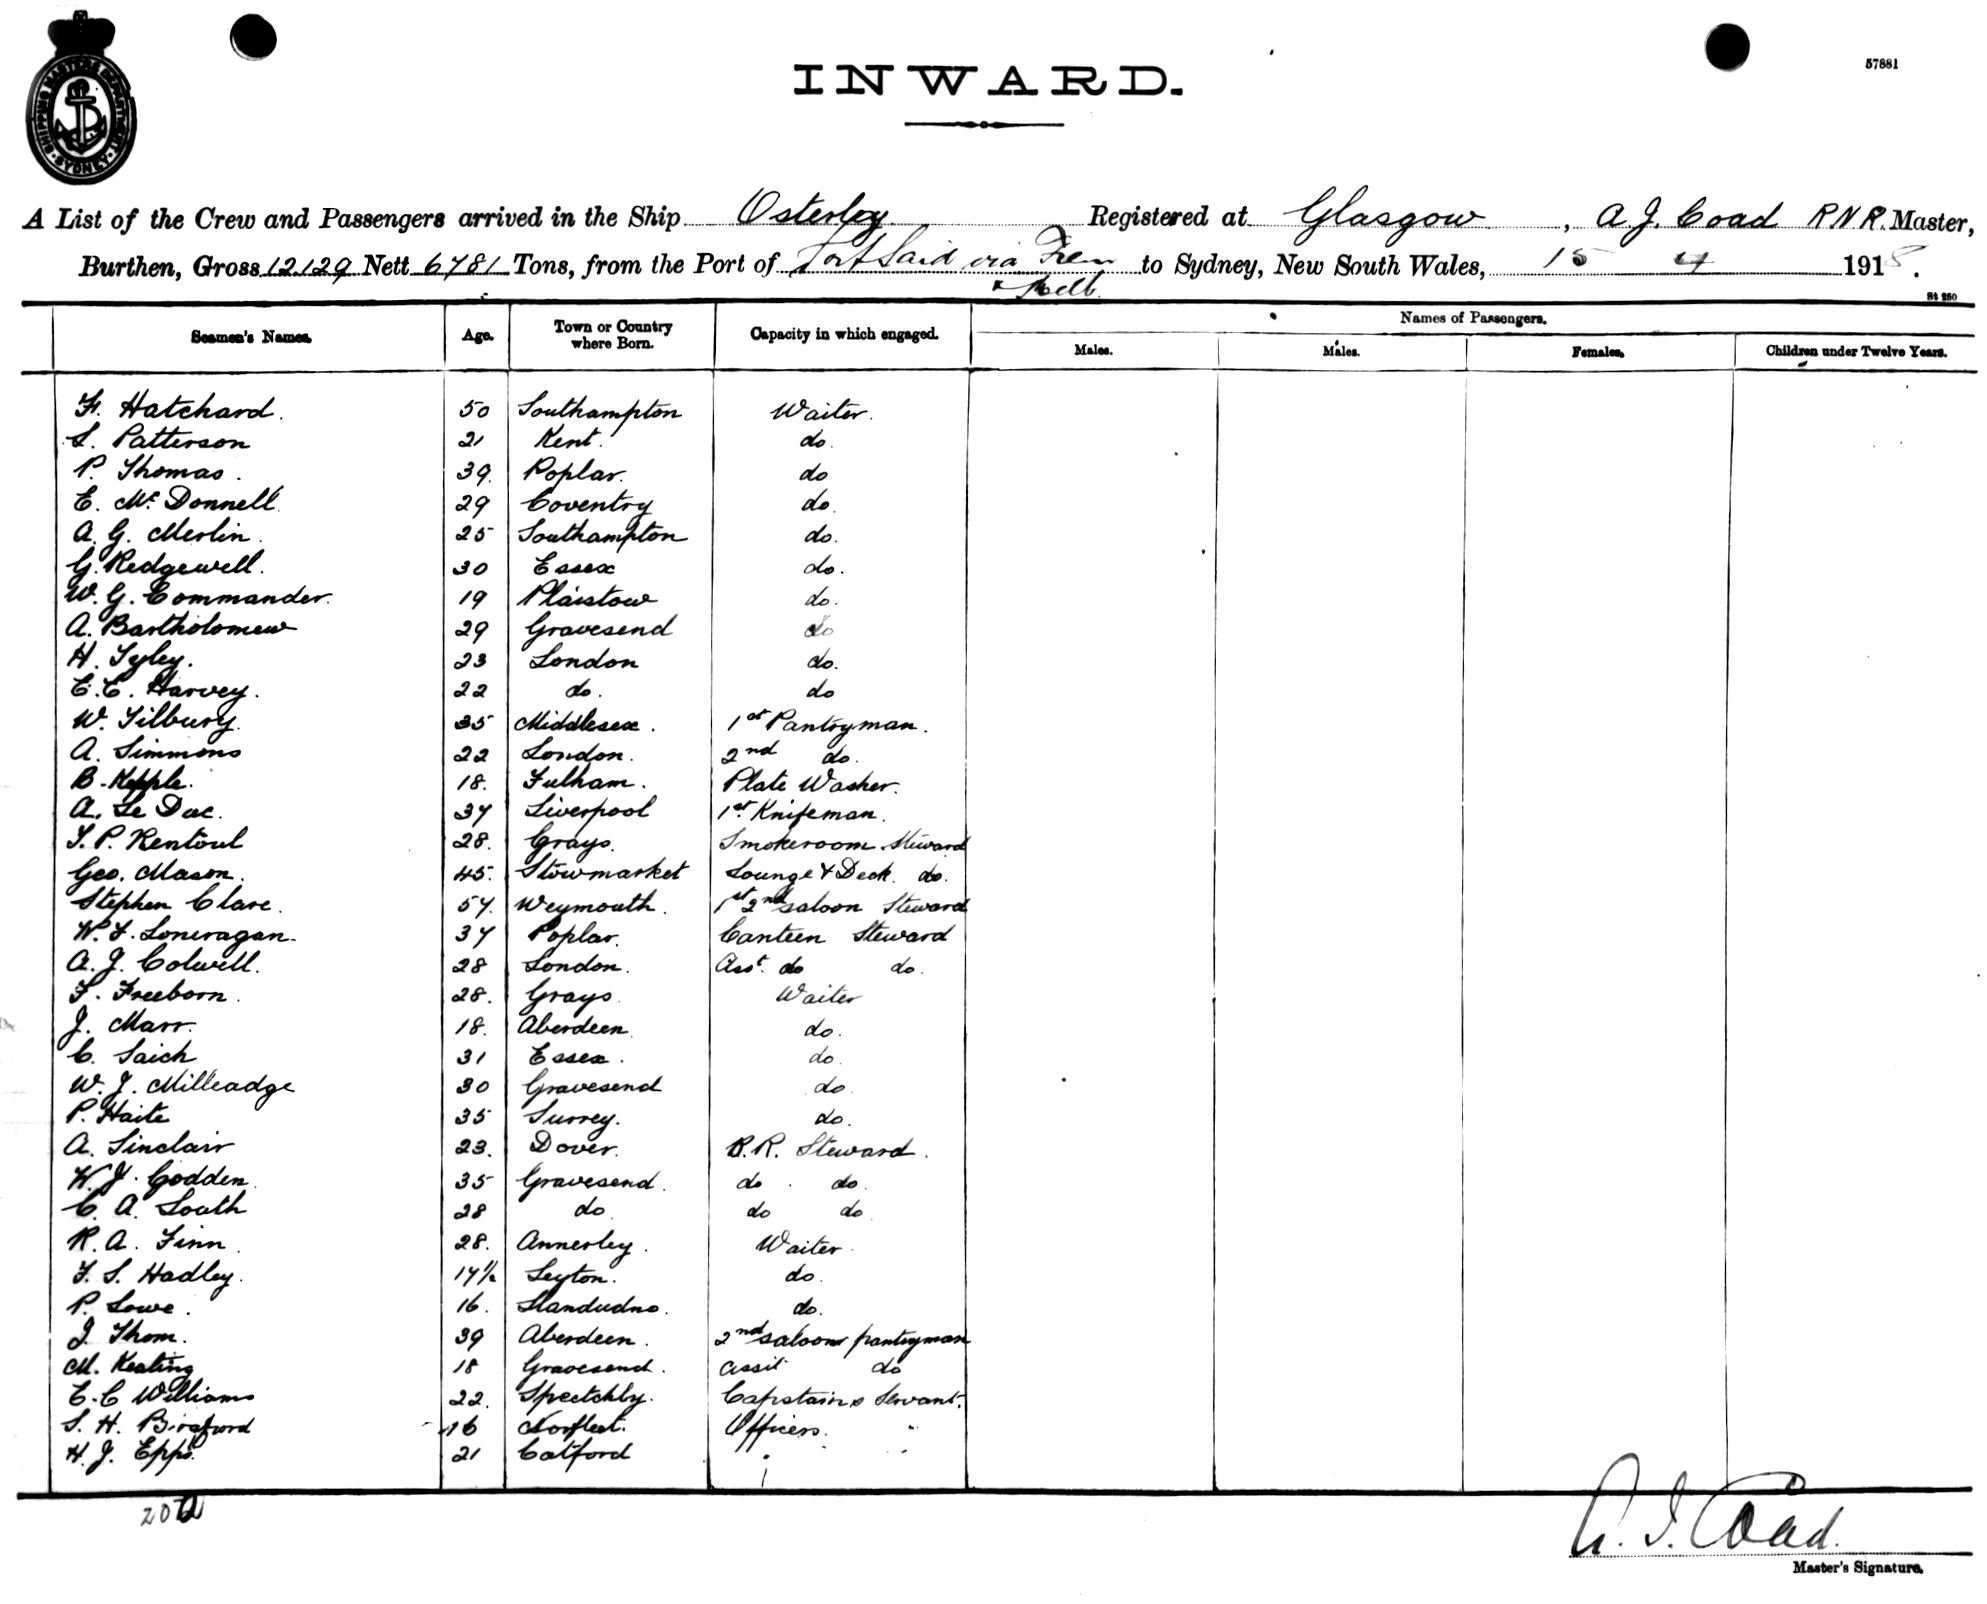 SHIPPING MASTERS DEPARTMENT · SYDNEY ·
57881
INWARD.
A List of the Crew and Passengers arrived in the Ship Osterley Registered at Glasgow, A J. Coad R N R. Master,
Burthen, Gross 12.129 Nett 6781 Tons, from the Port of Port Said via Frem to Sydney, New South Wales, 15 4 1918.
& Melb.
St 250
Seamen's Names. Age. Town or Country where Born. Capacity in which engaged. Names of Passengers.
Males. Males. Females. Children under Twelve Years.
F. Hatchard. 50 Southampton Waiter.
S. Patterson 21 Kent. do.
P. Thomas. 39. Poplar. do
E. Mc Donnell 29 Coventry do.
A. G. Merlin. 25 Southampton do.
G. Redgewell. 30 Essex do.
W. G. Commander. 19 Plaistow do.
A. Bartholomew 29 Gravesend do
H. Tyley. 23 London do.
E. E. Harvey. 22 do. do
W. Tilbury. 35 Middlesex. 1st Pantryman.
A. Simmons 22 London. 2nd do.
B. Kepple. 18. Fulham. Plate Washer.
A. Le Duc. 37 Liverpool 1st Knifeman.
T. P. Rentoul 28. Grays. Smokeroom Steward
Geo. Mason. 45. Stowmarket Lounge & Deck. do.
Stephen Clare. 57. Weymouth. 1st 2nd saloon Steward
W. F. Loneragan. 37 Poplar. Canteen Steward
A. J. Colwell. 28 London. Asst. do do.
F. Freeborn. 28. Grays. Waiter
J. Marr. 18. Aberdeen. do.
C. Saich 31 Essex. do.
W. J. Milleadge 30 Gravesend do.
P. Haite 35 Surrey. do.
A. Sinclair 23. Dover. B. R. Steward.
W. J. Godden. 35 Gravesend. do. do.
C. A. South 28 do. do do.
R. A. Finn 28. Annerley. Waiter.
F. S. Hadley. 17½ Leyton. do.
P. Lowe. 16. Llandudno. do.
J. Thom. 39 Aberdeen. 2nd saloon pantryman
M. Keating 18 Gravesend. assit do
E. C Williams 22. Spectchly. Capstains Servant.
S. H. 16 Norfleet. Officers. "
H. J. Epps. 21 Catford " "
A. J. Coad.
Master's Signature.